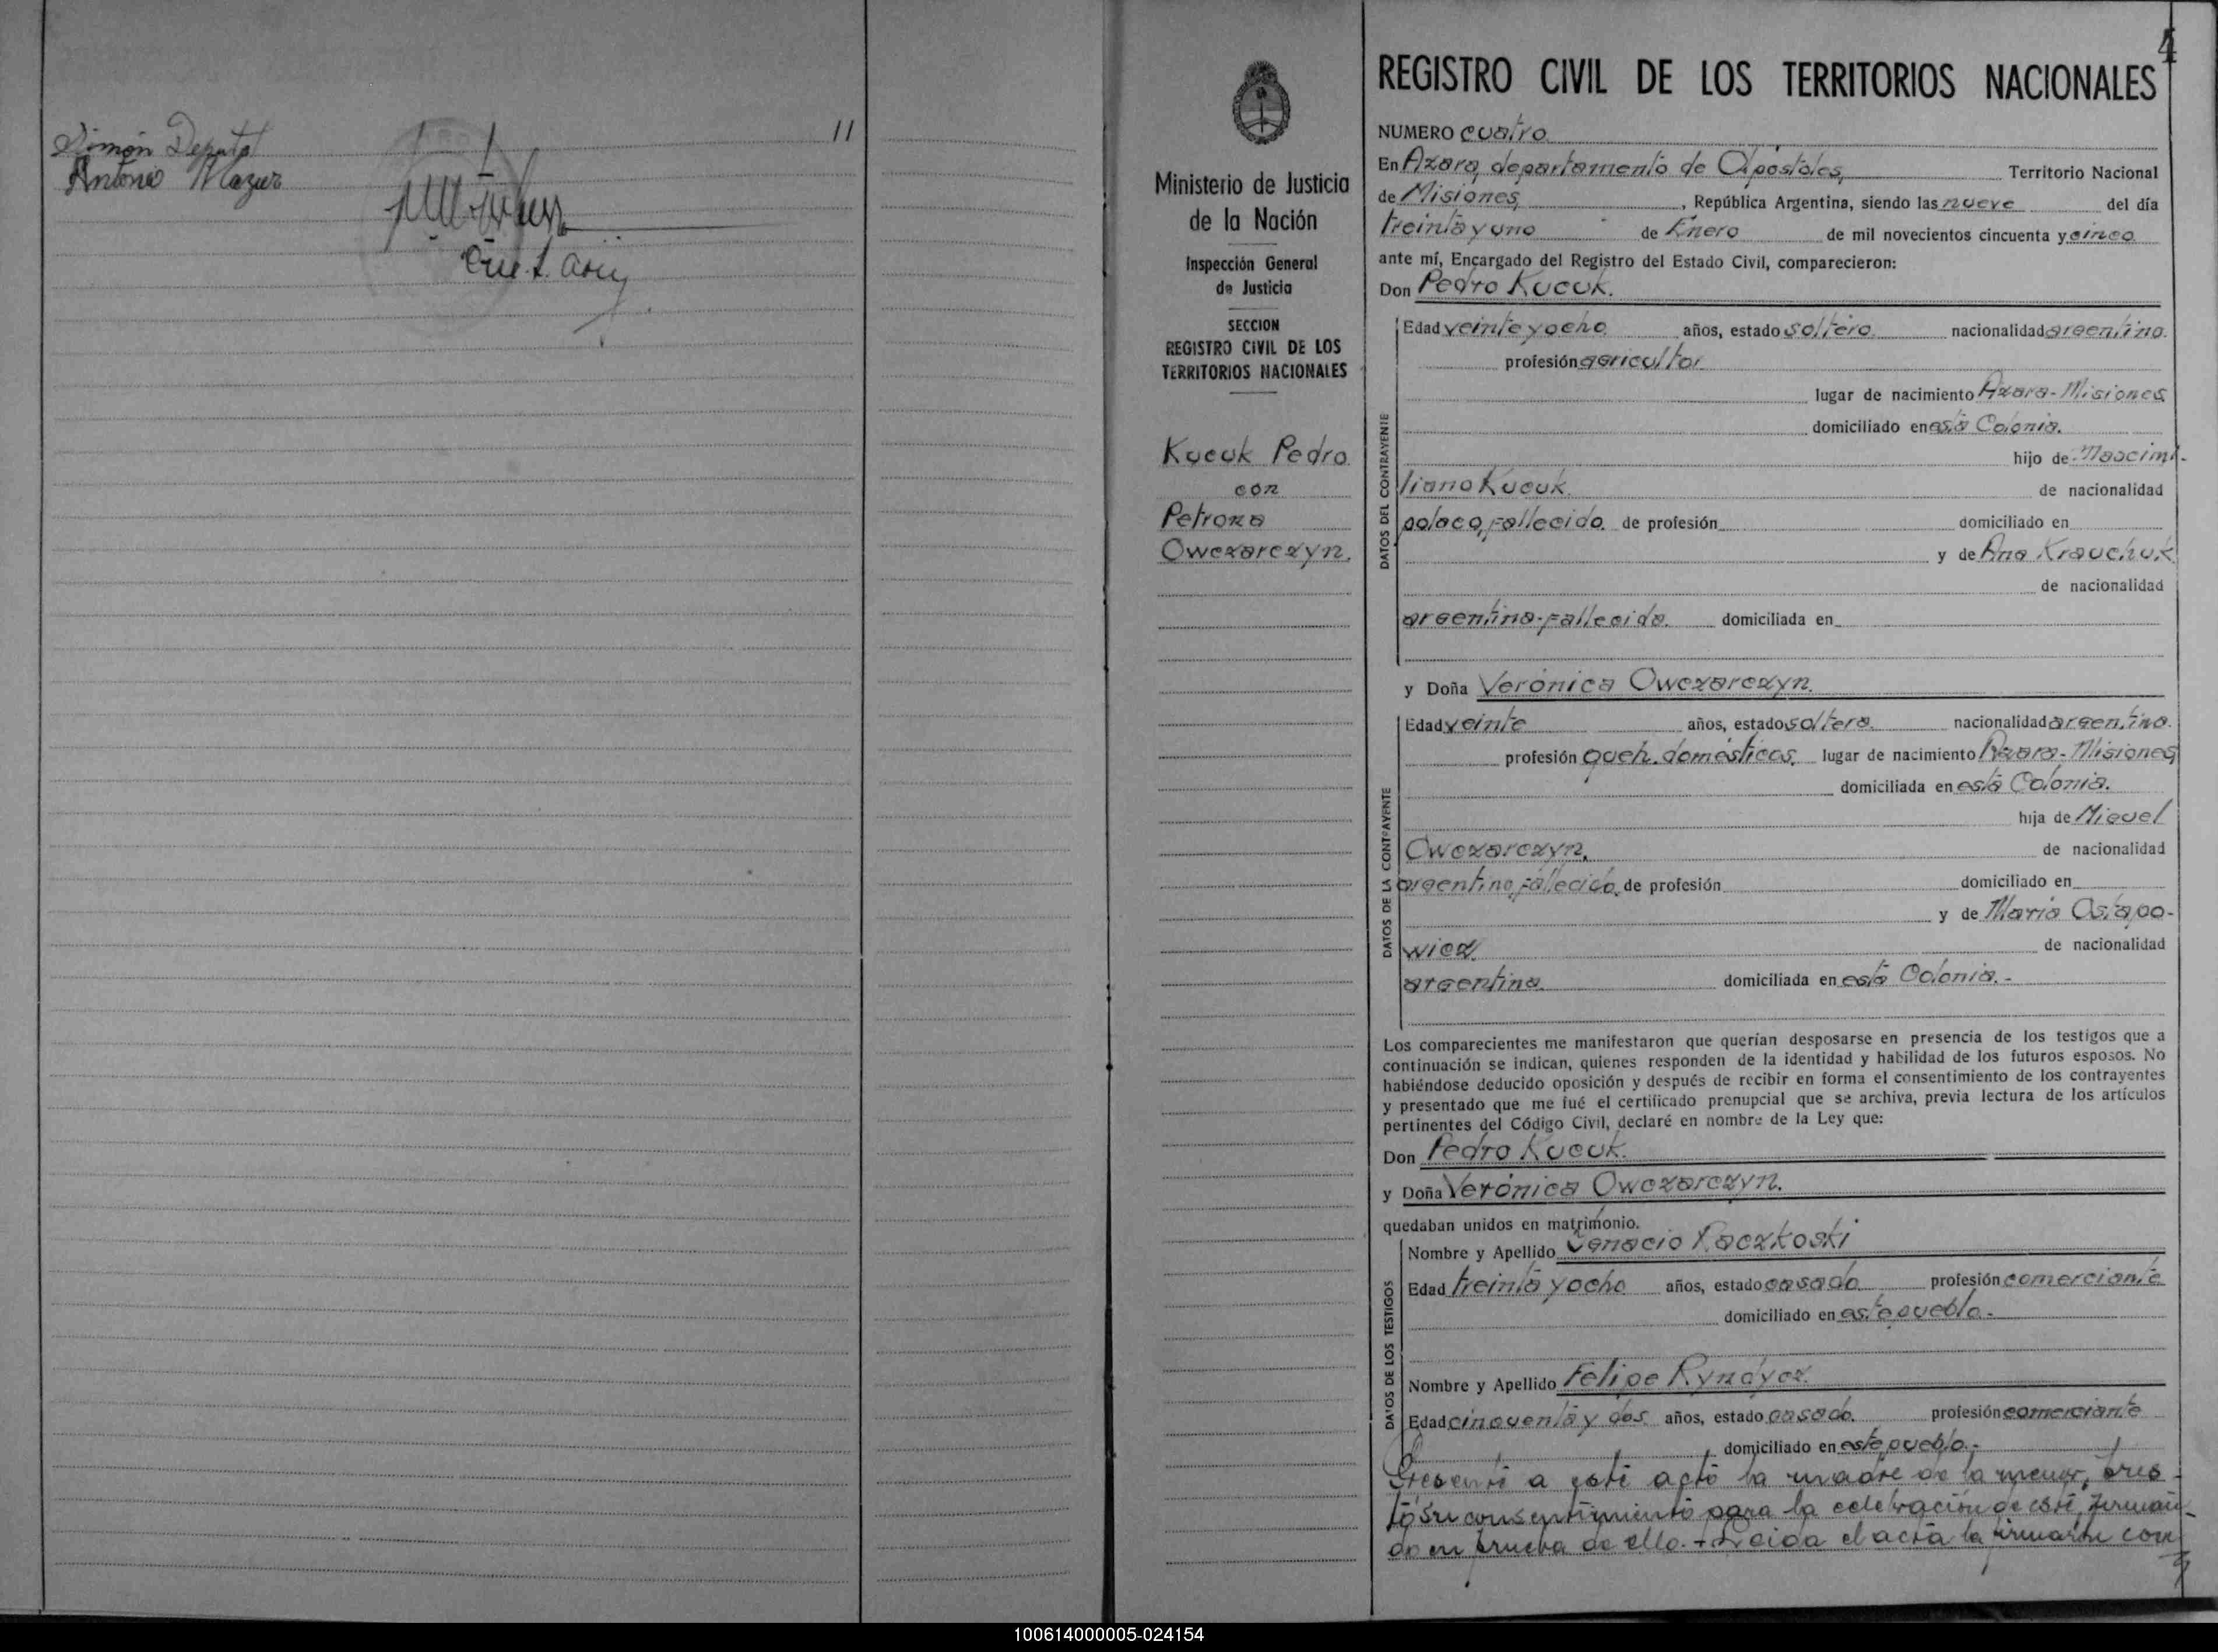 11
Simón Deputat
Antonio Mazur
4
REGISTRO CIVIL DE LOS TERRITORIOS NACIONALES
Ministerio de Justicia
de la Nación
Inspección General
de Justicia
SECCION
REGISTRO CIVIL DE LOS
TERRITORIOS NACIONALES
Kucuk Pedro
con
Petrona
Owczarczyn.
NUMERO cuatro
En Azara, departamento de Apóstoles, Territorio Nacional
de Misiones, , República Argentina, siendo las nueve del día
treinta y uno de Enero de mil novecientos cincuenta y cinco
ante mí, Encargado del Registro del Estado Civil, comparecieron:
Don Pedro Kucuk.
DATOS DEL CONTRAYENTE
Edad veinte y ocho años, estado soltero nacionalidad argentino.
profesión agricultor
lugar de nacimiento Azara-Misiones
domiciliado en esta Colonia.
hijo de Maocimi-
liano Kucuk. de nacionalidad
polaco, fallecido. de profesión domiciliado en
y de Ana Krauchuk
de nacionalidad
argentina-fallecida. domiciliada en
y Doña Verónica Owczarczyn.
DATOS DE LA CONTRAYENTE
Edad veinte años, estado soltera nacionalidad argentina.
profesión queh. domésticos. lugar de nacimiento Azara-Misiones
domiciliada en esta Colonia.
hija de Miguel
Owczarczyn. de nacionalidad
argentino, fallecido. de profesión domiciliado en
y de María Ostapo-
wicz. de nacionalidad
argentina. domiciliada en esta Colonia.-
Los comparecientes me manifestaron que querían desposarse en presencia de los testigos que a
continuación se indican, quienes responden de la identidad y habilidad de los futuros esposos. No
habiéndose deducido oposición y después de recibir en forma el consentimiento de los contrayentes
y presentado que me fué el certificado prenupcial que se archiva, previa lectura de los artículos
pertinentes del Código Civil, declaré en nombre de la Ley que:
Don Pedro Kucuk.
y Doña Verónica Owczarczyn.
quedaban unidos en matrimonio.
DATOS DE LOS TESTIGOS
Nombre y Apellido Ignacio Raczkoski
Edad treinta y ocho años, estado casado profesión comerciante
domiciliado en este pueblo.-
Nombre y Apellido Felipe Ryndycz.
Edad cincuenta y dos años, estado casado. profesión comerciante
domiciliado en este pueblo.-
Presente a este acto la madre de la menor, pres-
tó su consentimiento para la celebración de este, firman-
do en prueba de ello.- Leida el acta la firmaron con-
100614000005-024154